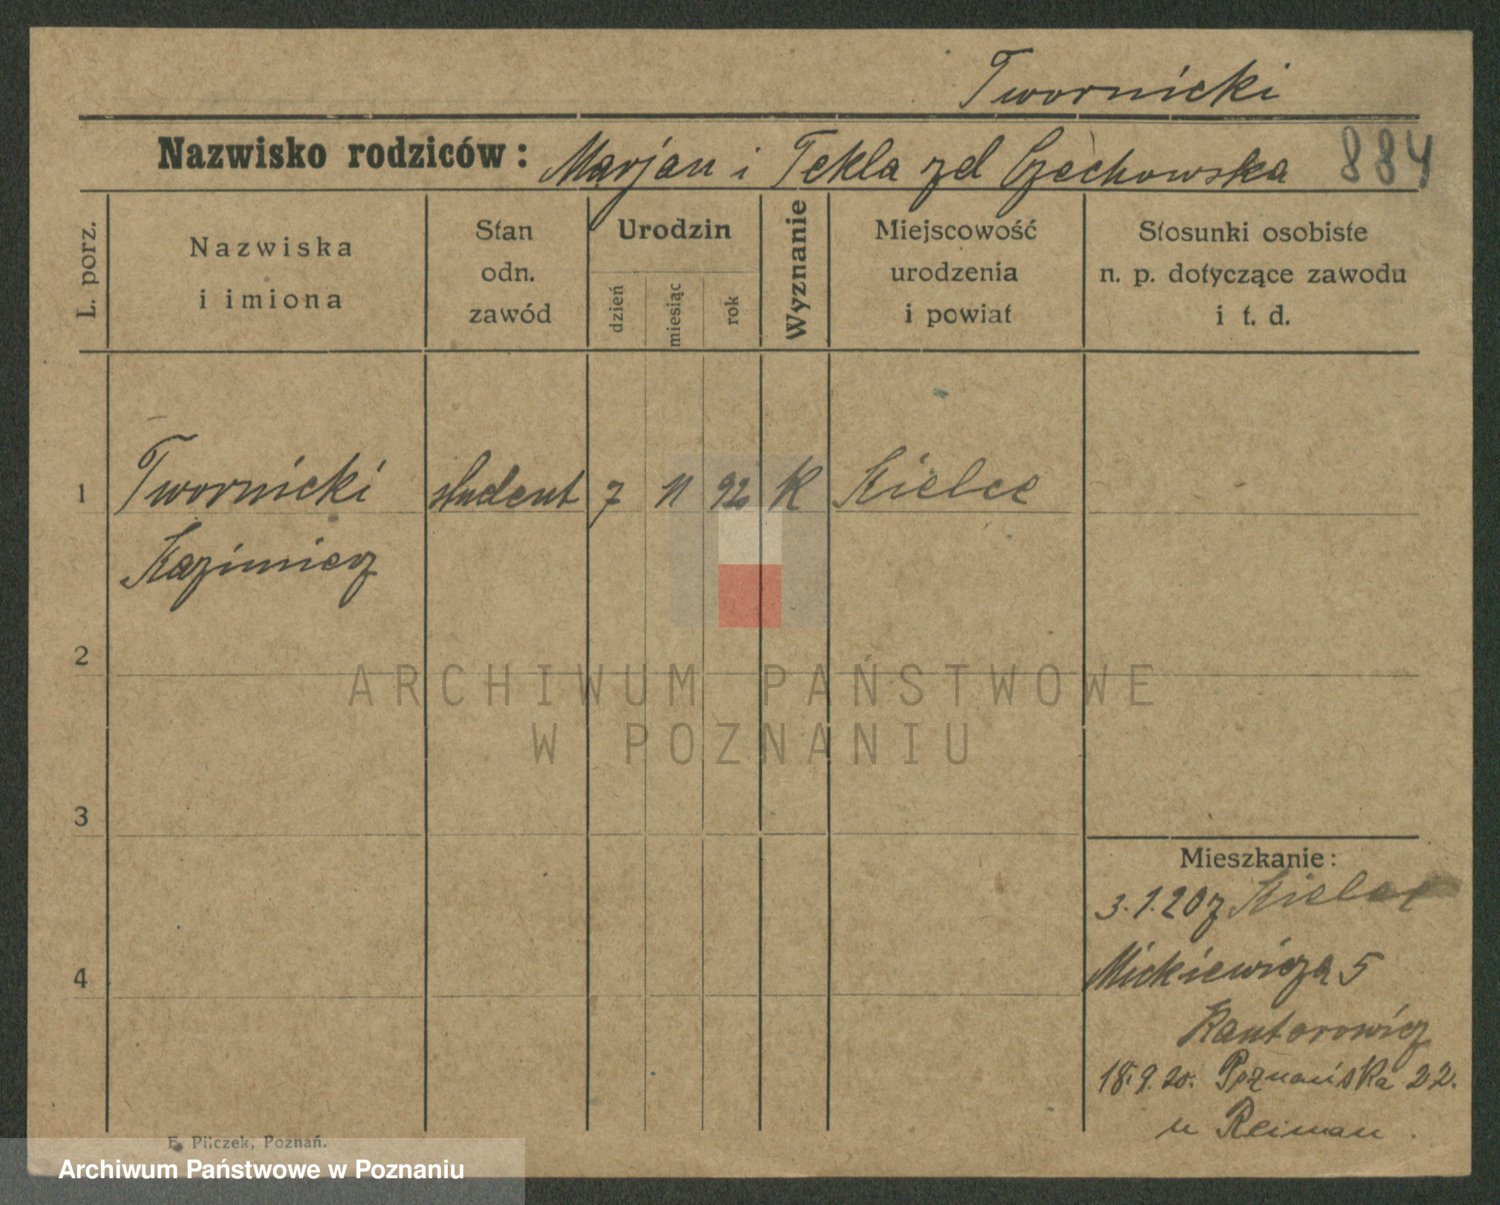 Twornicki
Nazwisko rodziców: Marjan i Tekla zd Czechowska 884
L. porz.
Nazwiska
i imiona
Stan
odn.
zawód
Urodzin
dzień
miesiąc
rok
Wyznanie
Miejscowość
urodzenia
i powiat
Stosunki osobiste
n. p. dotyczące zawodu
i t. d.
1 Twornicki student 7 11 92 K Kielce
Kazimierz
2
3
4
Mieszkanie:
3.1.20 z Kielce
Mickiewicza 5
Kantorowicz
18.9.20. Poznańska 22.
u Reiman.
E. Pilczek, Poznań.
ARCHIWUM PAŃSTWOWE
W POZNANIU
Archiwum Państwowe w Poznaniu